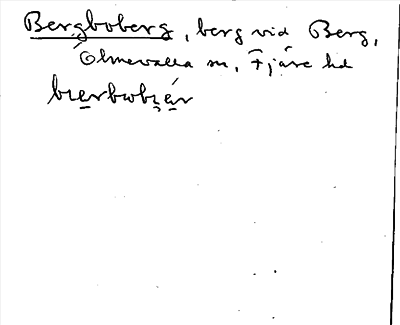 Bergboberg, berg vid Berg,
Ölmevalla sn, Fjäre hd